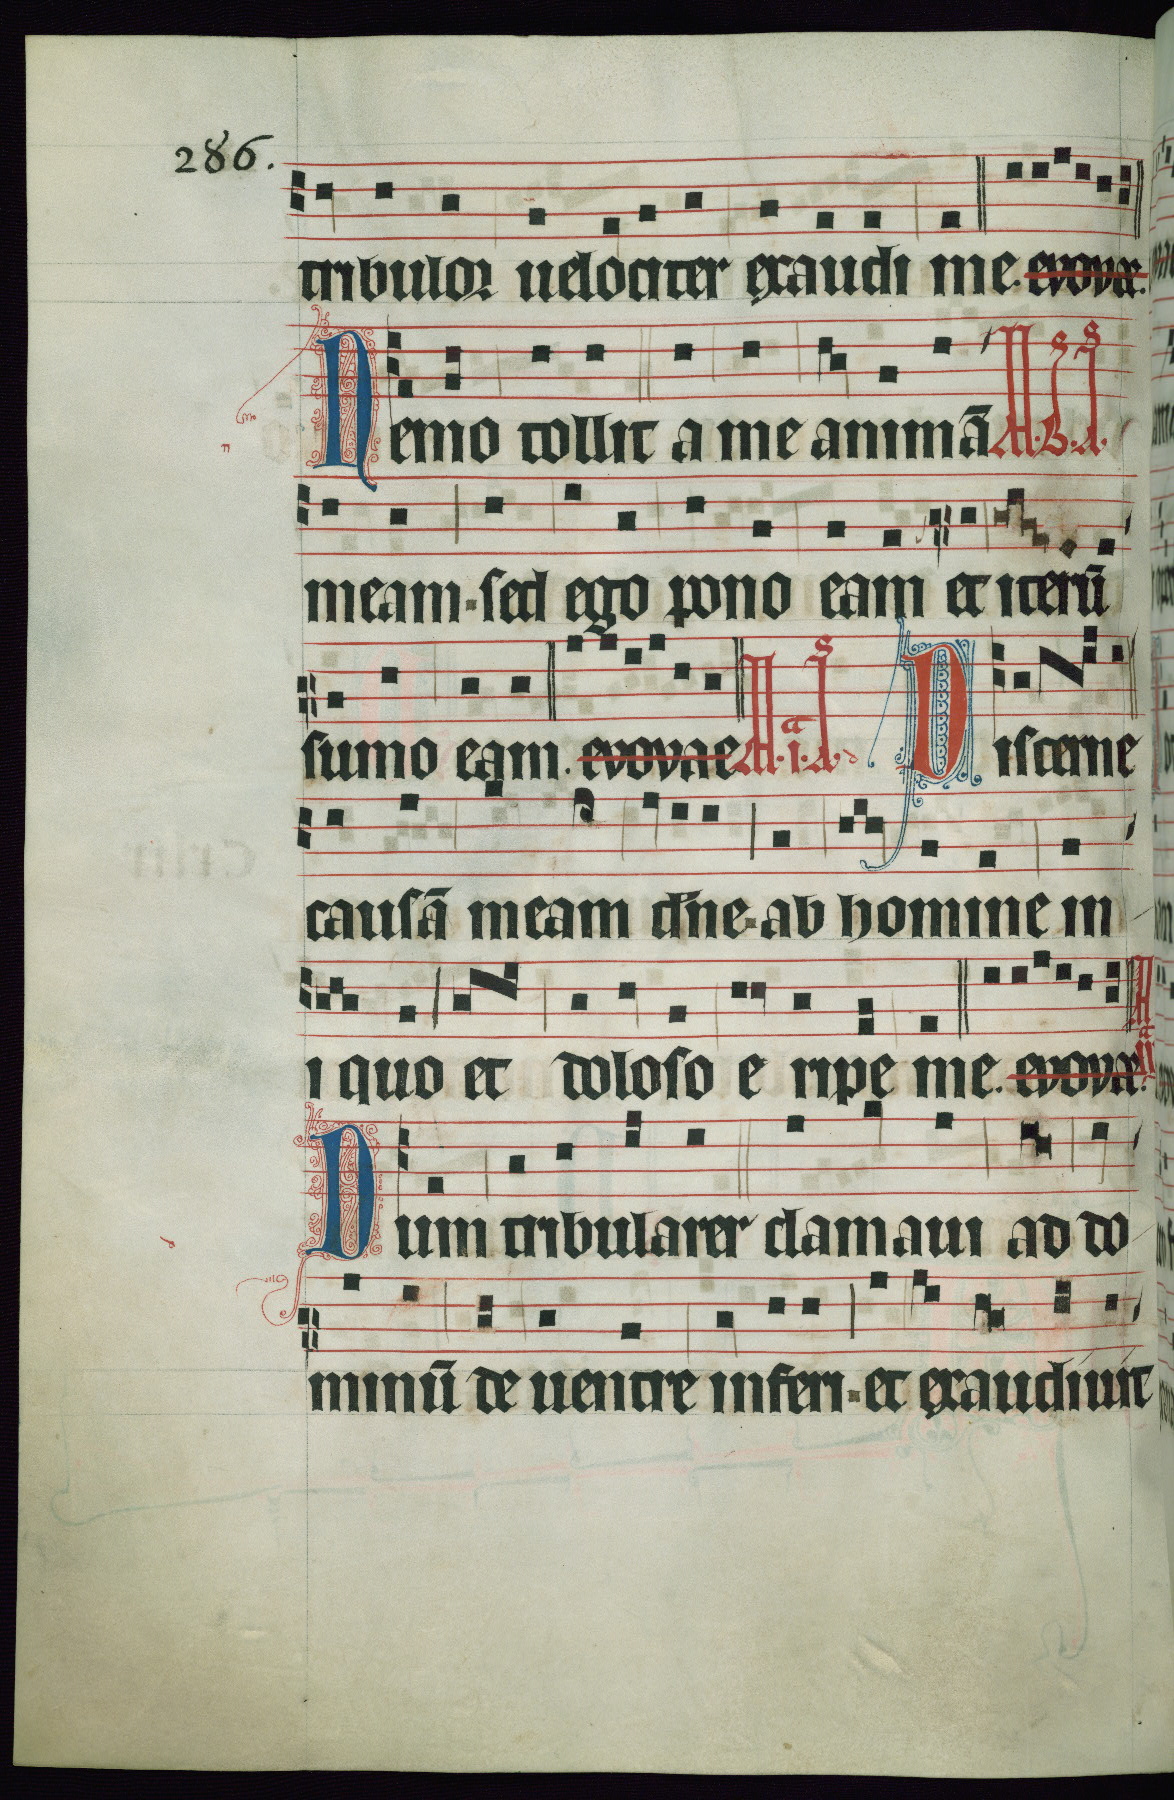 286.
tribulor uelociter exaudi me. evovae.
Nemo tollit a me animā
meam. sed ego pono eam et iterū
sumo eam. evovae Discerne
causā meam dn̄e. ab homine in
i quo et doloso e ripe me. evovae.
Dum tribularer clamaui ad do
minū de uentre inferi. et exaudiuit